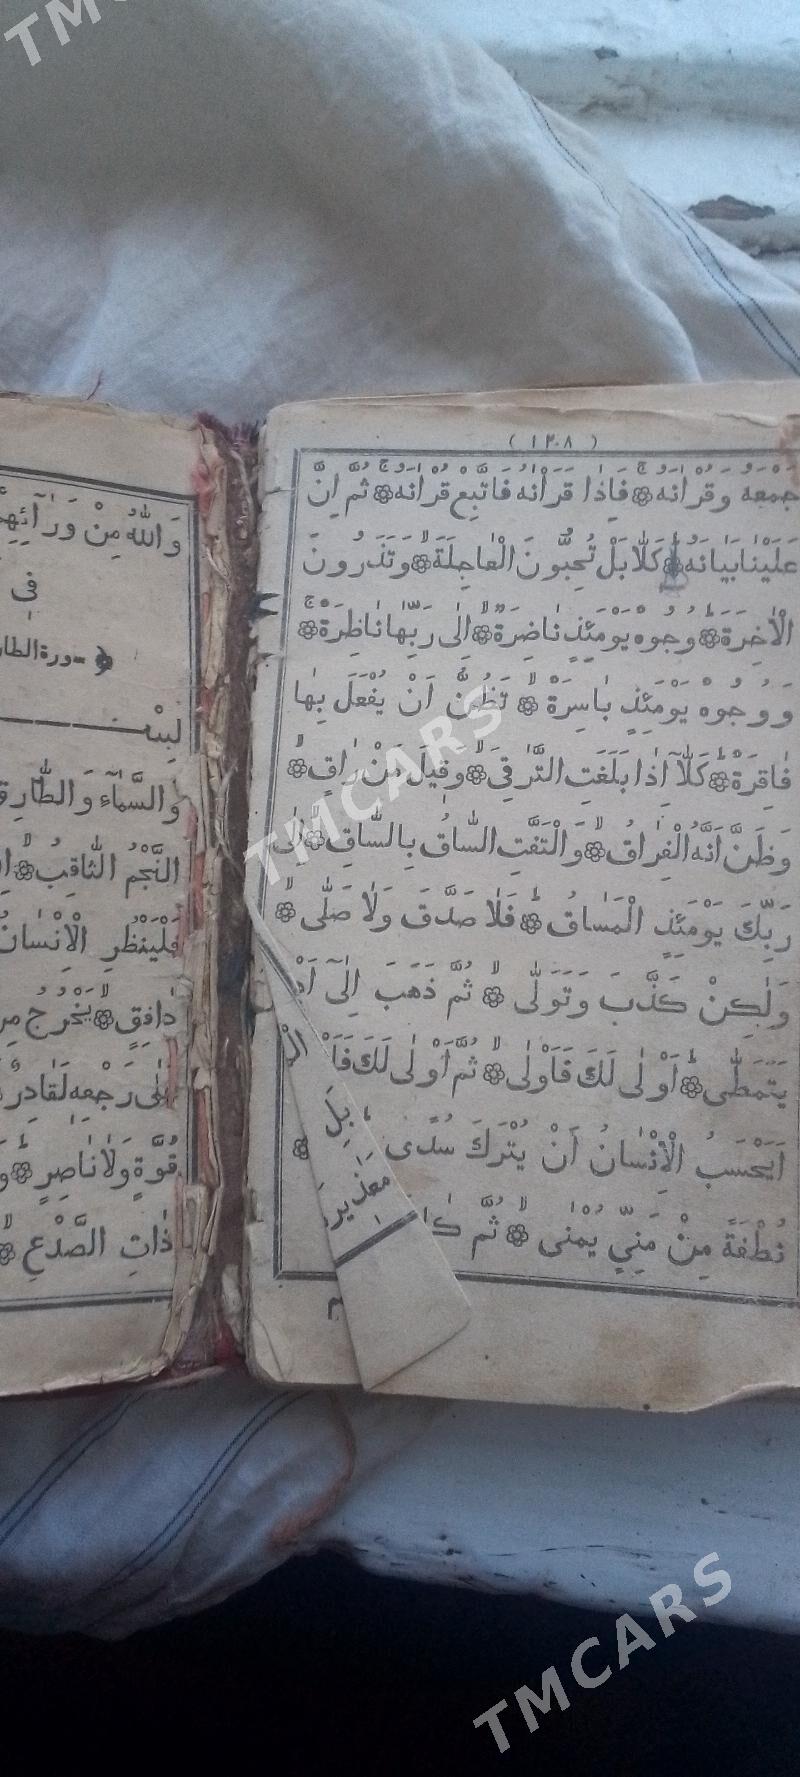 TMCARS
( ١٢٠٨ )
جَمْعَهُ وَقُرْاٰنَهُ فَاِذَا قَرَاْنَاهُ فَاتَّبِعْ قُرْاٰنَهُ ثُمَّ اِنَّ
عَلَيْنَا بَيَانَهُ كَلَّا بَلْ تُحِبُّونَ الْعَاجِلَةَ وَتَذَرُونَ
الْاٰخِرَةَ وُجُوهٌ يَوْمَئِذٍ نَاضِرَةٌ اِلٰى رَبِّهَا نَاظِرَةٌ
وَوُجُوهٌ يَوْمَئِذٍ بَاسِرَةٌ تَظُنُّ اَنْ يُفْعَلَ بِهَا
فَاقِرَةٌ كَلَّآ اِذَا بَلَغَتِ التَّرَاقِيَ وَقِيلَ مَنْ رَاقٍ
وَظَنَّ اَنَّهُ الْفِرَاقُ وَالْتَفَّتِ السَّاقُ بِالسَّاقِ اِلٰى
رَبِّكَ يَوْمَئِذٍ الْمَسَاقُ فَلَا صَدَّقَ وَلَا صَلّٰى
وَلٰكِنْ كَذَّبَ وَتَوَلّٰى ثُمَّ ذَهَبَ اِلٰٓى
يَتَمَطّٰى اَوْلٰى لَكَ فَاَوْلٰى ثُمَّ اَوْلٰى لَكَ
اَيَحْسَبُ الْاِنْسَانُ اَنْ يُتْرَكَ سُدًى
نُطْفَةً مِنْ مَنِيٍّ يُمْنٰى ثُمَّ
وَاللّٰهُ مِنْ وَرَآئِهِمْ
فى
سورة الطار
وَالسَّمَآءِ وَالطَّارِقِ
النَّجْمُ الثَّاقِبُ
فَلْيَنْظُرِ الْاِنْسَانُ
دَافِقٍ يَخْرُجُ مِنْ
عَلٰى رَجْعِهِ لَقَادِرٌ
قُوَّةٍ وَلَا نَاصِرٍ
ذَاتِ الصَّدْعِ
TMCARS
TMCARS